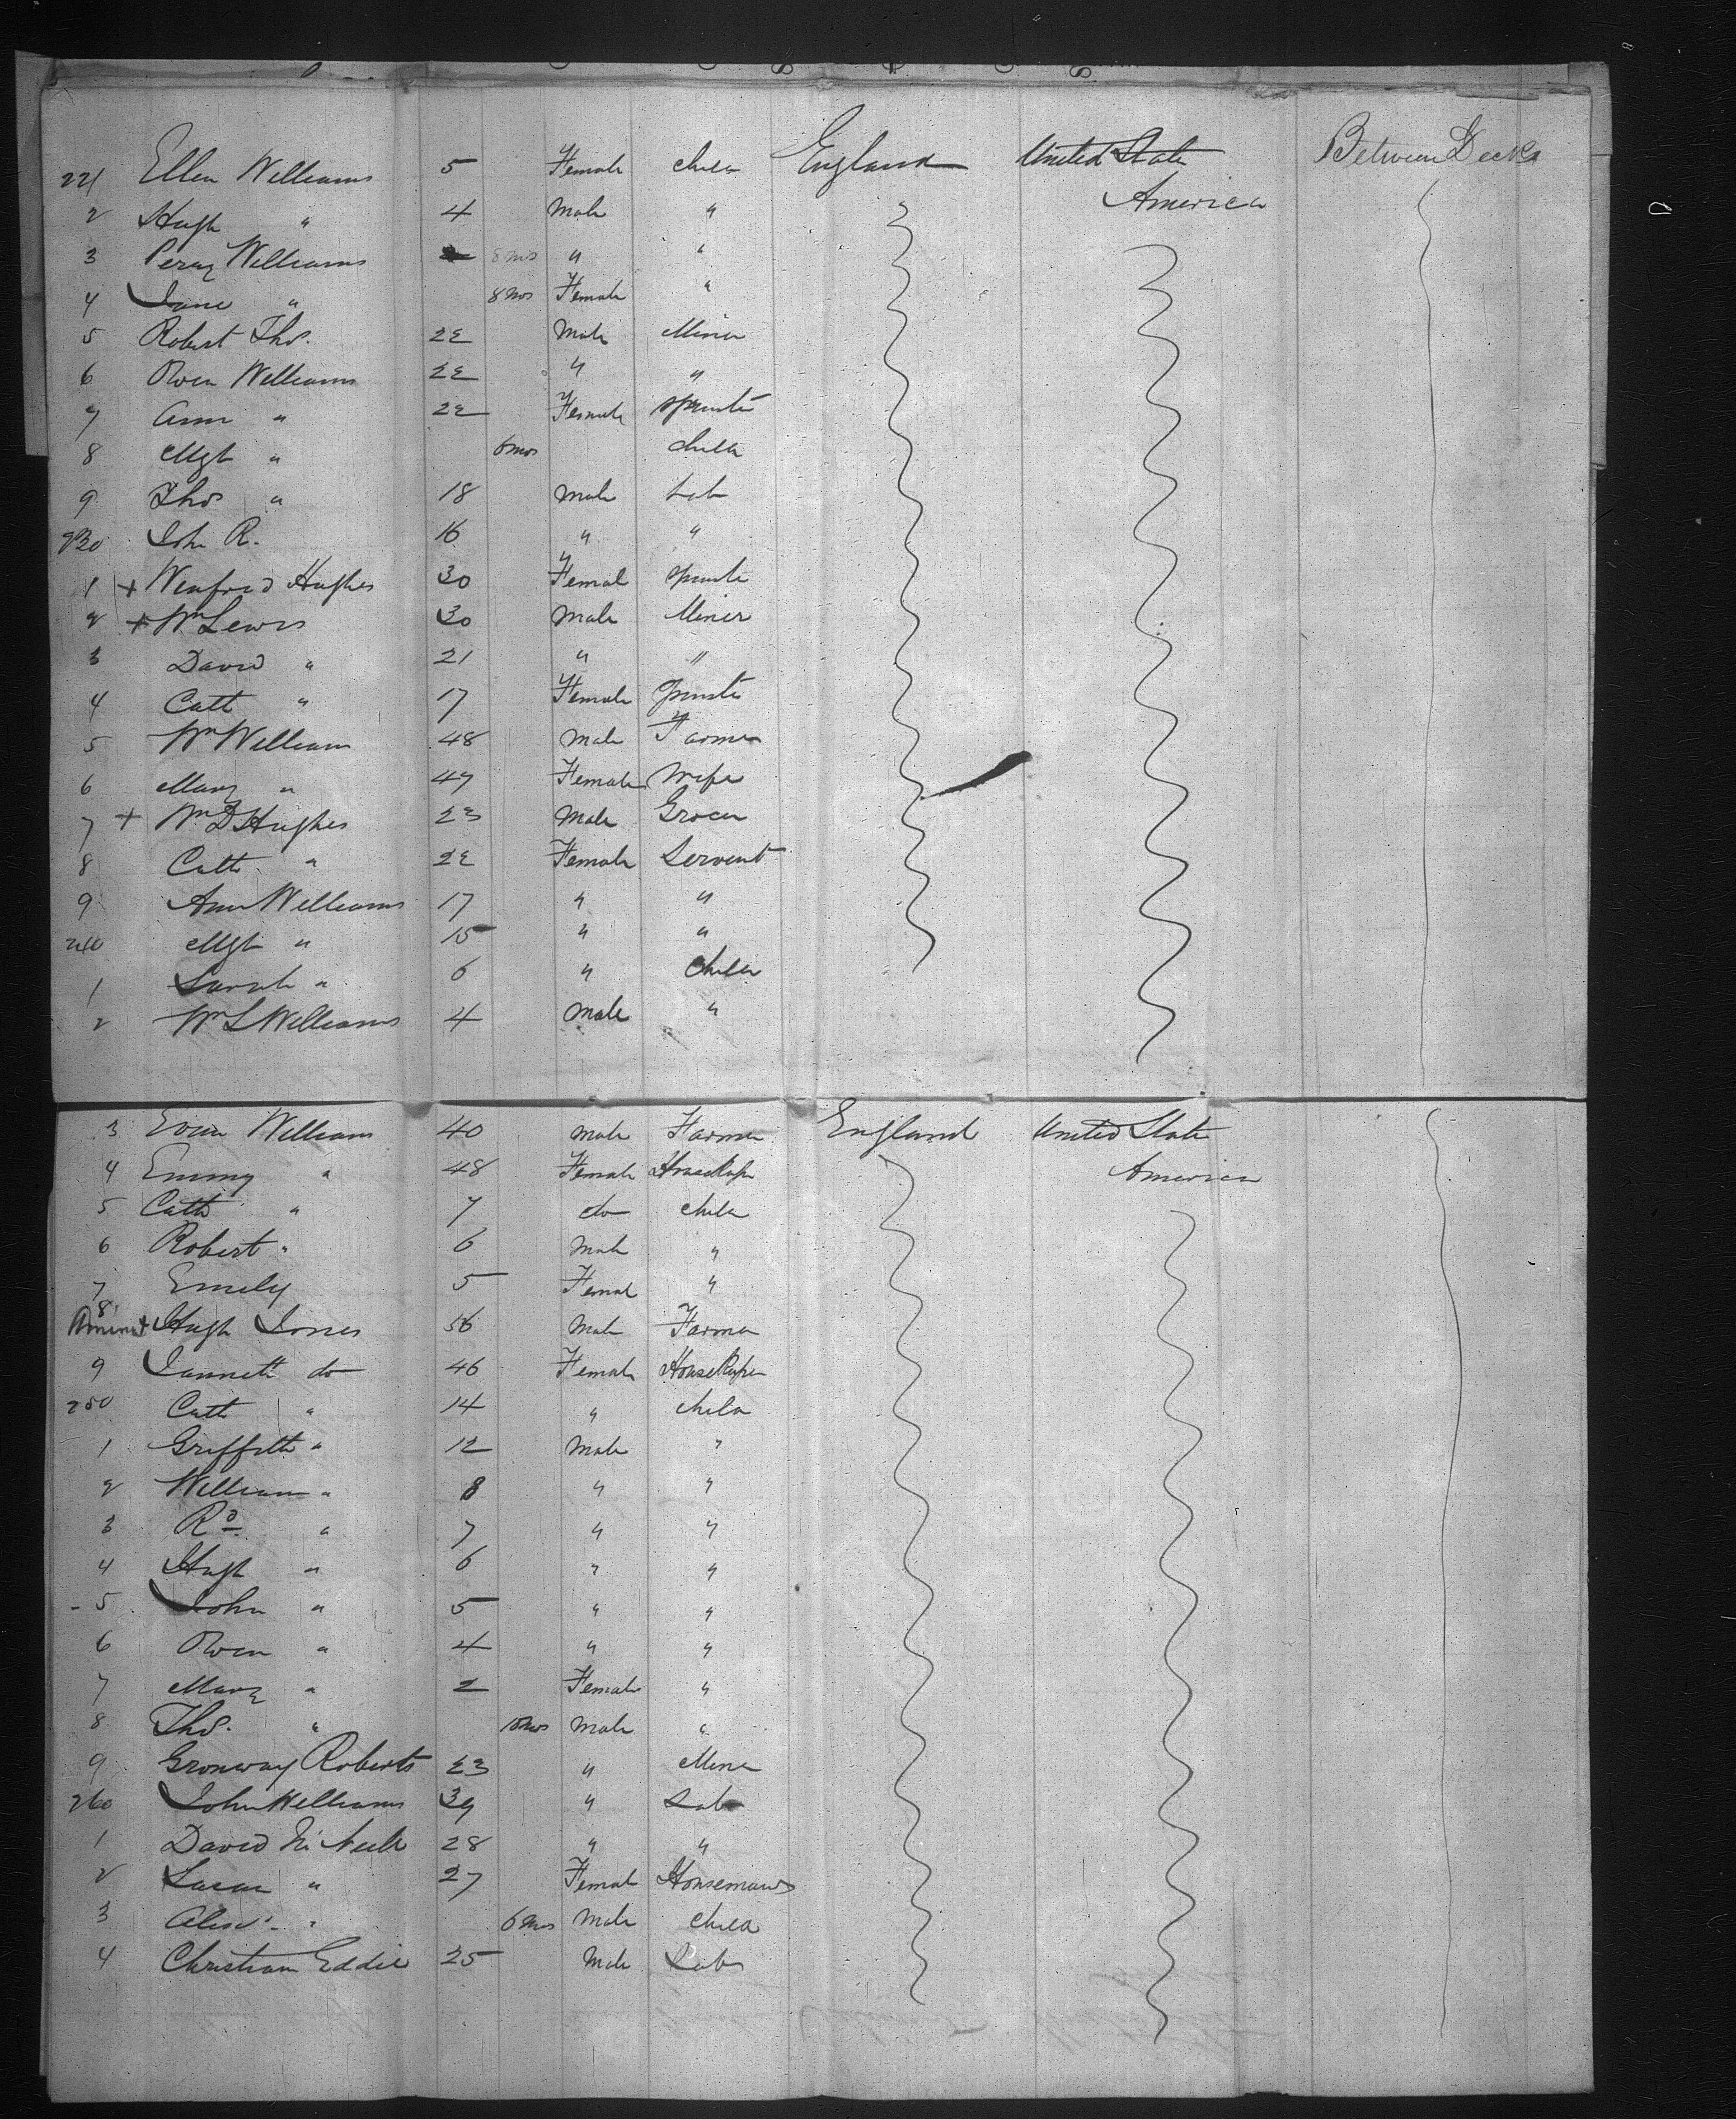 221 Ellen Williams 5 Female child England United State Between Decks
2 Hugh " 4 Male " America
3 Percy Williams 8 mos " "
4 Jane " 8 mos Female "
5 Robert Thos. 22 Male Miner
6 Owen Williams 22 " "
7 Ann " 22 Female Spinster
8 Mgt " 6 mos child
9 Thos " 18 Male Lab
230 John R. 16 " "
1 + Winfred Hughes 30 Female Spinste
2 + Wm Lewis 30 Male Miner
3 David " 21 " "
4 Cath " 17 Female Spinste
5 Wm William 48 Male Farmer
6 Mary " 47 Female Wife
7 + Wm D Hughes 23 Male Grocer
8 Cath " 22 Female Servent
9 Ann Williams 17 " "
240 Mgt " 15 " "
1 Sarah " 6 " Child
2 Wm L Williams 4 Male "
3 Evan William 40 Male Farmer England United State
4 Emmy " 48 Female America
5 Cath " 7 do child
6 Robert " 6 Male "
7 Emily 5 Femal "
8 Hugh Jones 56 Male Farmer
9 Jannett do 46 Female Housekeeper
250 Cath " 14 " child
1 Griffith " 12 Male "
2 William " 8 " "
3 Rd " 7 " "
4 Hugh " 6 " "
5 John " 5 " "
6 Owen " 4 " "
7 Mary " 2 Female "
8 Thos. " 10 mos Male "
9 Gronway Roberts 23 " Miner
260 John Williams 39 " Lab
1 David 28 " "
2 Susan " 27 Female Housemaid
3 " 6 mos Male child
4 Christian Eddie 25 Male Lab